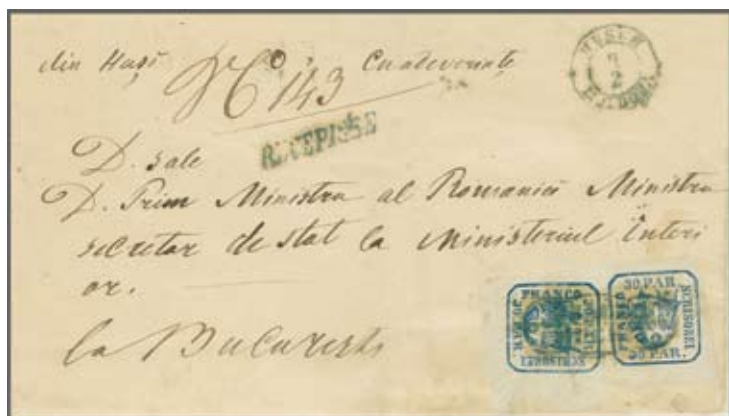 din Huși
No 143
RECEPISSE
D. sale
D. Prim Ministru al Romaniei Ministru
secretar de stat la Ministeriul Interi
or.
la Bucuresti
FRANCO
SCRISOREI
30 PAR
FRANCO
SCRISOREI
30 PAR.